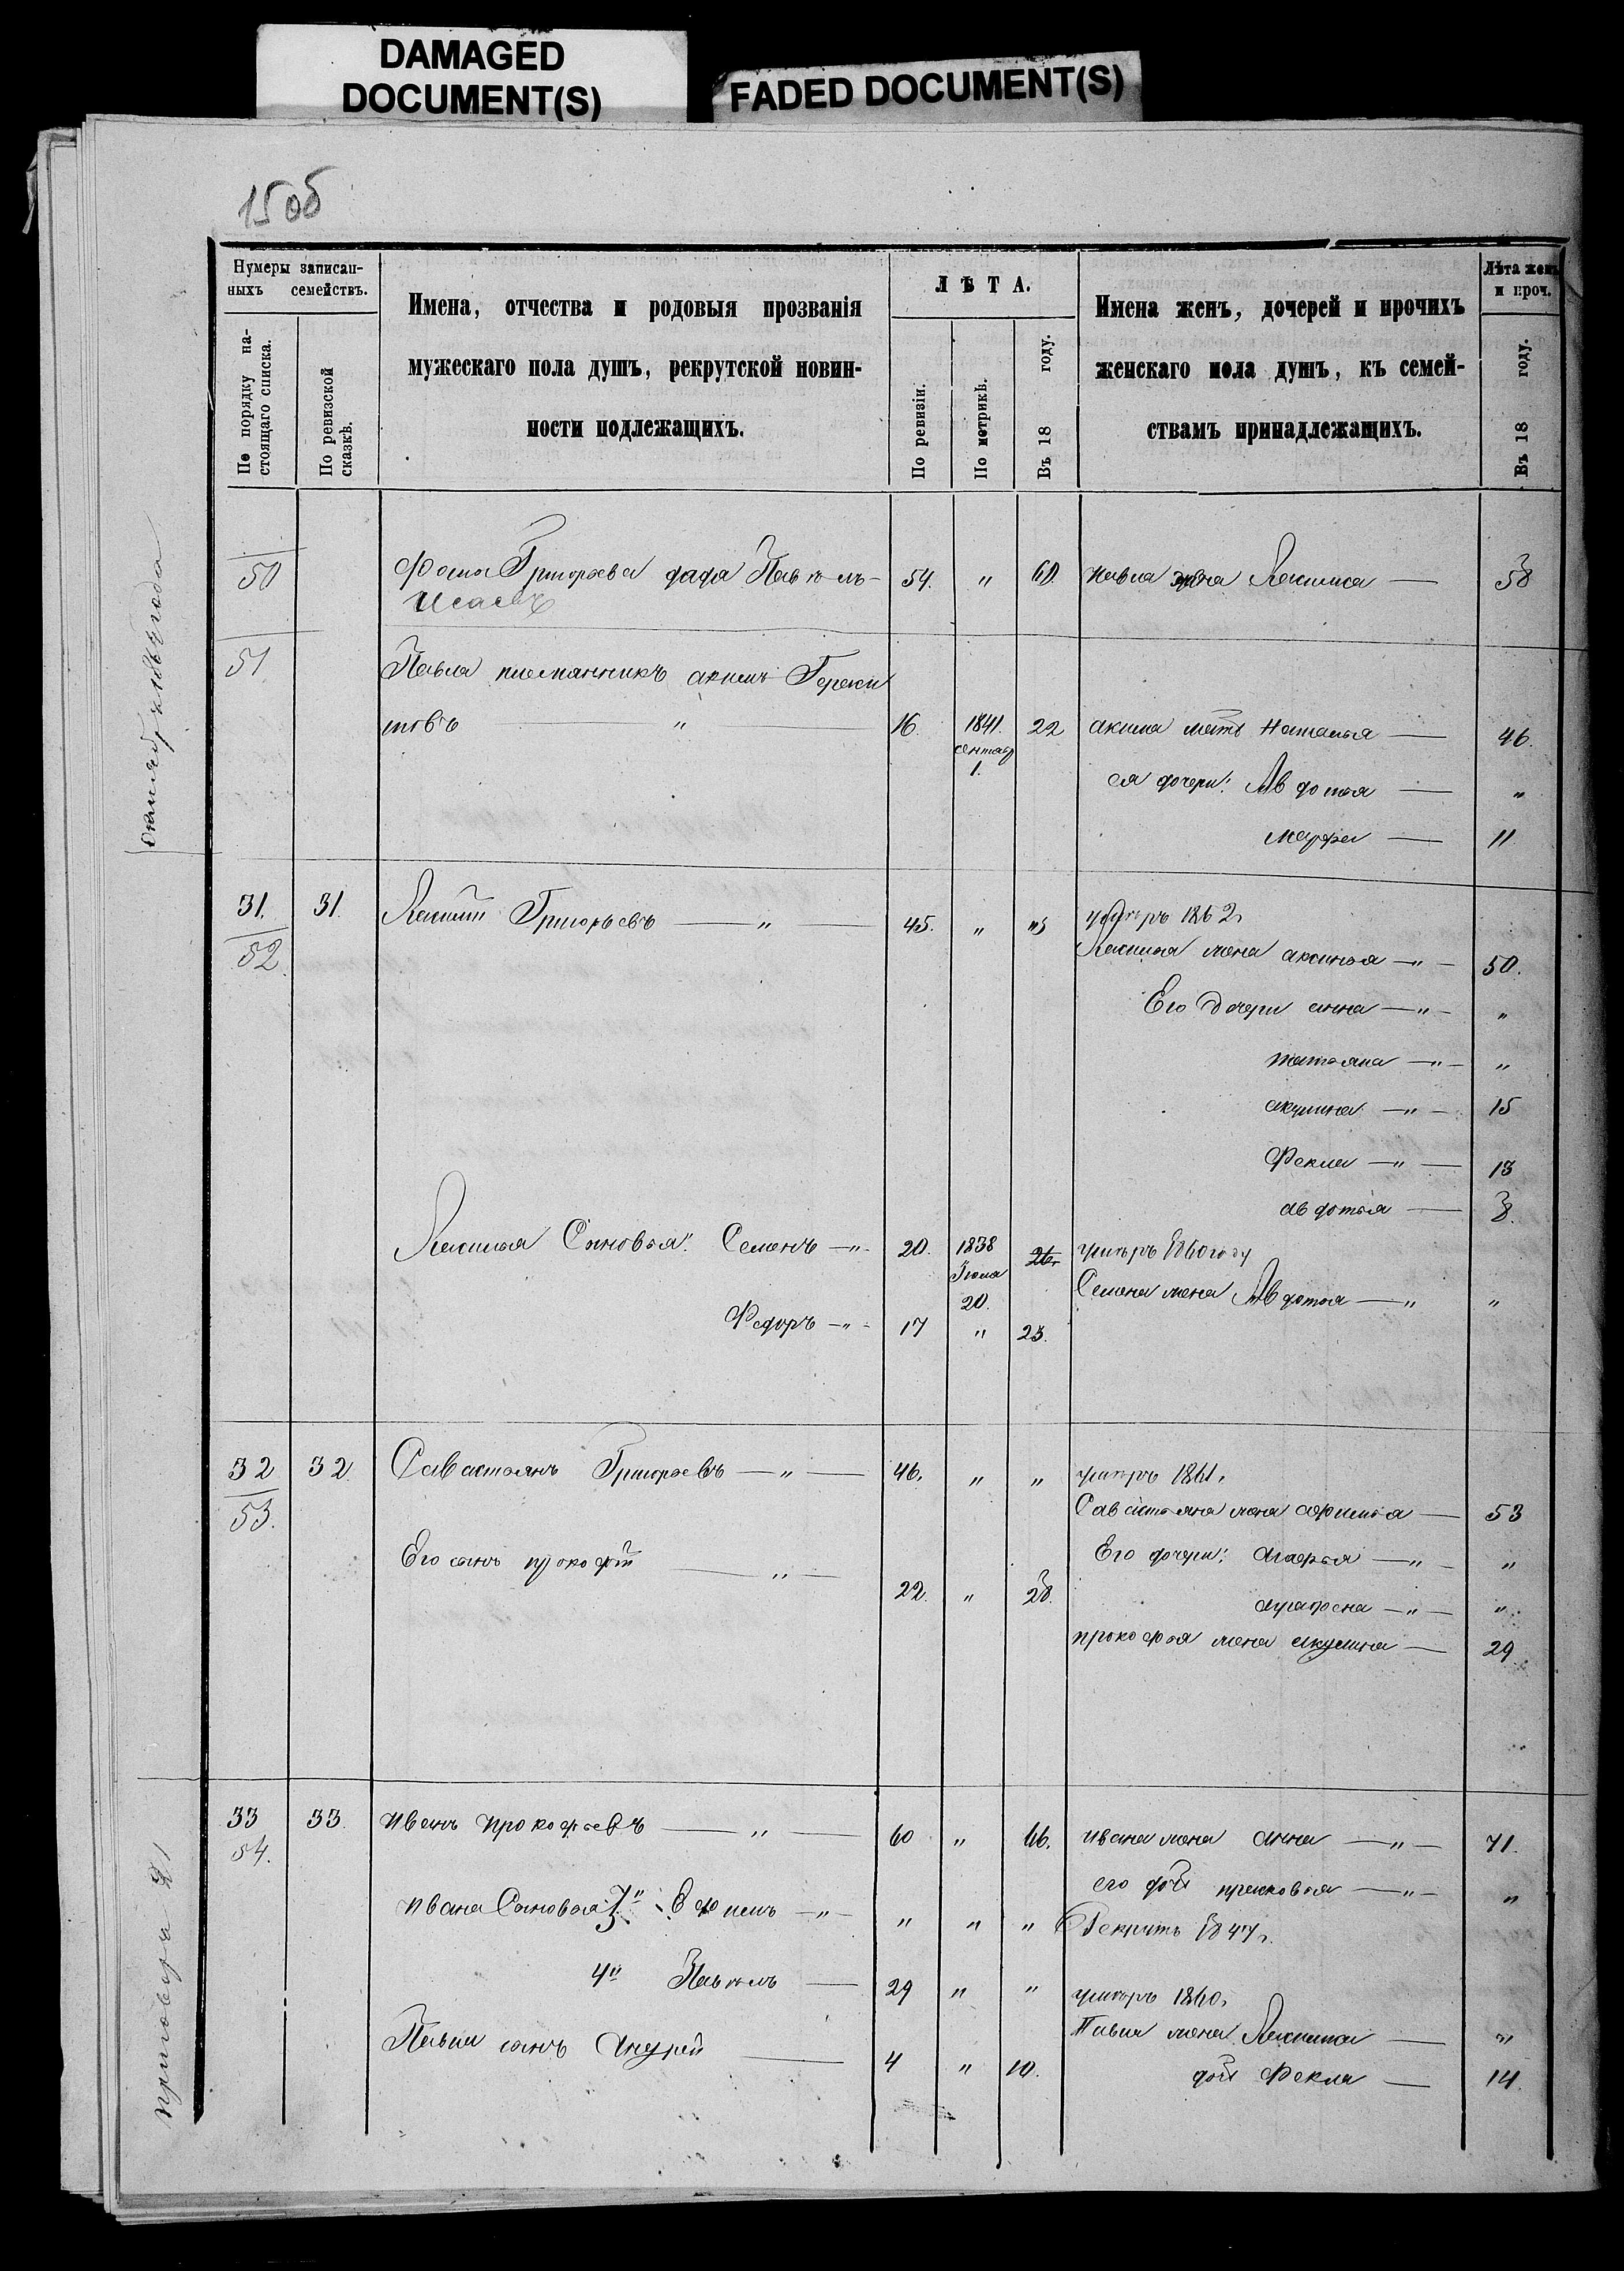 DAMAGED
DOCUMENT(S)
FADED DOCUMENT(S)
15 об
Нумеры записан-
ныхъ семействъ.
По порядку на-
стоящаго списка.
По ревизской
сказкѣ.
Имена, отчества и родовыя прозванія
мужескаго пола душъ, рекрутской повин-
ности подлежащихъ.
ЛѢТА.
По ревизіи.
По метрикѣ.
Въ 18 году.
Имена женъ, дочерей и прочихъ
женскаго пола душъ, къ семей-
ствамъ принадлежащихъ.
Лѣта женъ
и проч.
Въ 18 году.
50 Фома Григорьева дядя Павелъ 54. " 60. Павла жена 58
Исаевъ
51 Павла племянникъ акимъ
товъ " 16. 1841. 22 акима мать Наталья 46.
сентяб
1.
ея дочери: Авдотья "
марфа 11
31. 31. Григорьевъ " 45. " умеръ 1862г
52 жена аксинья " 50.
Его дочери анна " "
татьяна " "
акулина " 15
Фекла " 13
авдотья 8.
Сыновья: Семенъ " 20. 1838 26 умеръ 1860 году
Іюля
20.
Семена жена Авдотья " "
Федоръ " 17 " 23.
32 32. Савастьянъ Григорьевъ " 46. " " умеръ 1861г
53. Савастьяна жена афимья 53
Его сынъ прокофій " 22. " 28.
Его дочери: агафья " "
аграфена " "
прокофья жена акулина 29
33 33. иванъ прокофьевъ " 60 " 66. ивана жена анна " 71.
54. его дочь прасковья " "
ивана Сыновья: 3й Ефимъ " " " " Рекрутъ 1847г.
4й Павелъ 29 " " умеръ 1860г
Павла жена "
Павла сынъ Андрей 4 " 10. дочь Фекла 14.
приговора 21